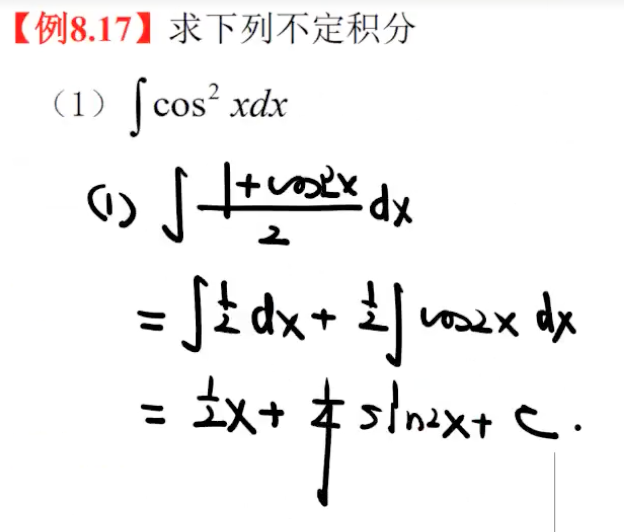 【例8.17】求下列不定积分
（1）∫cos² xdx
(1) ∫ (1+cos2x)/2 dx
= ∫ 1/2 dx + 1/2 ∫ cos2x dx
= 1/2 x + 1/4 sin2x + C.